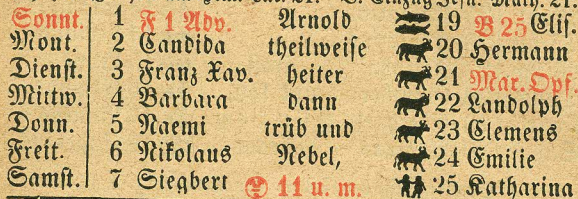 Sonnt. 1 F 1 Adv. Arnold 19 B 25 Elis.
Mont. 2 Candida theilweise 20 Hermann
Dienst. 3 Franz Xav. heiter 21 Mar. Opf.
Mittw. 4 Barbara dann 22 Landolph
Donn. 5 Naemi trüb und 23 Clemens
Freit. 6 Nikolaus Nebel, 24 Emilie
Samst. 7 Siegbert 11 u. m. 25 Katharina